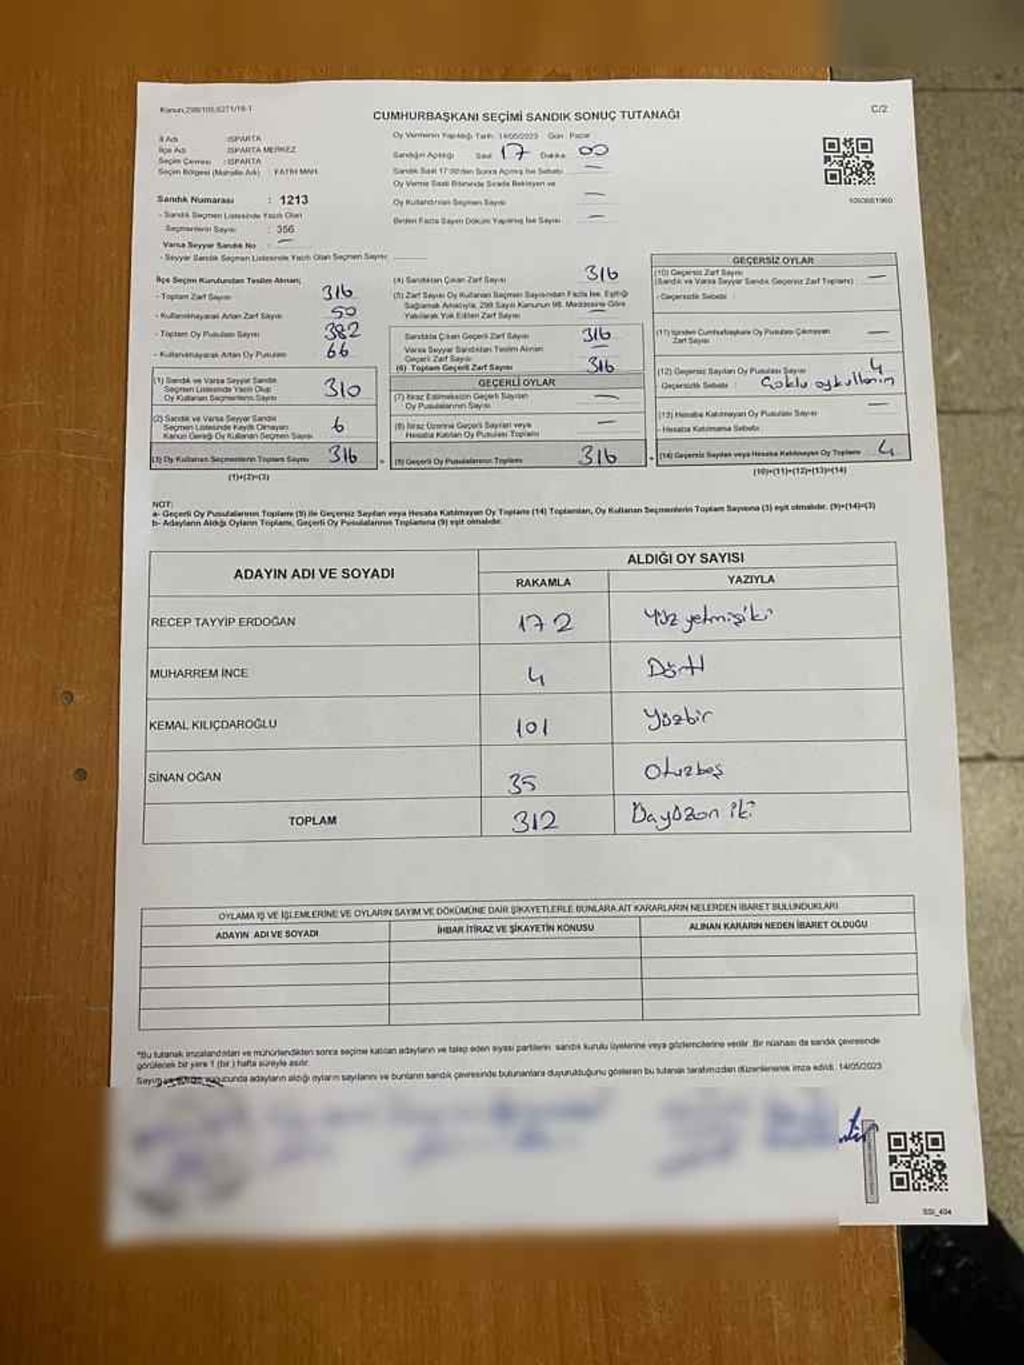 Kanun:298/105,6271/18-1
C/2
CUMHURBAŞKANI SEÇİMİ SANDIK SONUÇ TUTANAĞI
İl Adı : ISPARTA
İlçe Adı : ISPARTA MERKEZ
Seçim Çevresi : ISPARTA
Seçim Bölgesi (Mahalle Adı) : FATİH MAH.
Sandık Numarası : 1213
- Sandık Seçmen Listesinde Yazılı Olan
Seçmenlerin Sayısı : 356
Varsa Seyyar Sandık No : —
- Seyyar Sandık Seçmen Listesinde Yazılı Olan Seçmen Sayısı:
Oy Vermenin Yapıldığı Tarih: 14/05/2023 Gün: Pazar
Sandığın Açıldığı Saat 17 Dakika 00
Sandık Saat 17:00'den Sonra Açılmış İse Sebebi —
Oy Verme Saati Bitiminde Sırada Bekleyen ve
Oy Kullandırılan Seçmen Sayısı —
Birden Fazla Sayım Döküm Yapılmış İse Sayısı —
1093681960
İlçe Seçim Kurulundan Teslim Alınan;
- Toplam Zarf Sayısı 316
- Kullanılmayarak Artan Zarf Sayısı 50
- Toplam Oy Pusulası Sayısı 382
- Kullanılmayarak Artan Oy Pusulası 66
(1) Sandık ve Varsa Seyyar Sandık
Seçmen Listesinde Yazılı Olup
Oy Kullanan Seçmenlerin Sayısı 310
(2) Sandık ve Varsa Seyyar Sandık
Seçmen Listesinde Kayıtlı Olmayan
Kanun Gereği Oy Kullanan Seçmen Sayısı 6
(3) Oy Kullanan Seçmenlerin Toplam Sayısı 316
(1)+(2)=(3)
(4) Sandıktan Çıkan Zarf Sayısı 316
(5) Zarf Sayısı Oy Kullanan Seçmen Sayısından Fazla İse, Eşitliği
Sağlamak Amacıyla, 298 Sayılı Kanunun 98. Maddesine Göre
Yakılarak Yok Edilen Zarf Sayısı —
Sandıkta Çıkan Geçerli Zarf Sayısı 316
Varsa Seyyar Sandıktan Teslim Alınan
Geçerli Zarf Sayısı —
(6) Toplam Geçerli Zarf Sayısı 316
GEÇERLİ OYLAR
(7) İtiraz Edilmeksizin Geçerli Sayılan
Oy Pusulalarının Sayısı —
(8) İtiraz Üzerine Geçerli Sayılan veya
Hesaba Katılan Oy Pusulası Toplamı —
(9) Geçerli Oy Pusulalarının Toplamı 316
GEÇERSİZ OYLAR
(10) Geçersiz Zarf Sayısı
(Sandık ve Varsa Seyyar Sandık Geçersiz Zarf Toplamı) —
- Geçersizlik Sebebi :
(11) İçinden Cumhurbaşkanı Oy Pusulası Çıkmayan
Zarf Sayısı —
(12) Geçersiz Sayılan Oy Pusulası Sayısı 4
- Geçersizlik Sebebi : Çoklu oy kullanım
(13) Hesaba Katılmayan Oy Pusulası Sayısı —
- Hesaba Katılmama Sebebi :
(14) Geçersiz Sayılan veya Hesaba Katılmayan Oy Toplamı 4
(10)+(11)+(12)+(13)=(14)
NOT:
a- Geçerli Oy Pusulalarının Toplamı (9) ile Geçersiz Sayılan veya Hesaba Katılmayan Oy Toplamı (14) Toplamları, Oy Kullanan Seçmenlerin Toplam Sayısına (3) eşit olmalıdır. (9)+(14)=(3)
b- Adayların Aldığı Oyların Toplamı, Geçerli Oy Pusulalarının Toplamına (9) eşit olmalıdır.
ADAYIN ADI VE SOYADI
ALDIĞI OY SAYISI
RAKAMLA YAZIYLA
RECEP TAYYİP ERDOĞAN 172 Yüz yetmişiki
MUHARREM İNCE 4 Dört
KEMAL KILIÇDAROĞLU 101 Yüzbir
SİNAN OĞAN 35 Otuzbeş
TOPLAM 312
OYLAMA İŞ VE İŞLEMLERİNE VE OYLARIN SAYIM VE DÖKÜMÜNE DAİR ŞİKAYETLERLE BUNLARA AİT KARARLARIN NELERDEN İBARET BULUNDUKLARI
ADAYIN ADI VE SOYADI
İHBAR İTİRAZ VE ŞİKAYETİN KONUSU
ALINAN KARARIN NEDEN İBARET OLDUĞU
*Bu tutanak imzalandıktan ve mühürlendikten sonra seçime katılan adayların ve talep eden siyasi partilerin sandık kurulu üyelerine veya gözlemcilerine verilir. Bir nüshası da sandık çevresinde
görülecek bir yere 1 (bir) hafta süreyle asılır.
sonucunda adayların aldığı oyların sayılarını ve bunların sandık çevresinde bulunanlara duyurulduğunu gösteren bu tutanak tarafımızdan düzenlenerek imza edildi. 14/05/2023
SSI_404